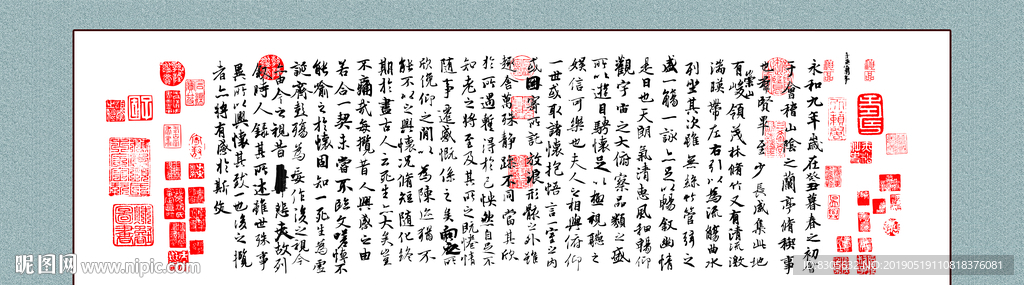 永和九年歲在癸丑暮春之初
于會稽山陰之蘭亭脩稧事
也群賢畢至少長咸集此地
有崇山峻領茂林脩竹又有清流激
湍暎帶左右引以為流觴曲水
列坐其次雖無絲竹管弦之
盛一觴一詠亦足以暢敘幽情
是日也天朗氣清惠風和暢仰
觀宇宙之大俯察品類之盛
所以遊目騁懷足以極視聽之
娛信可樂也夫人之相與俯仰
一世或取諸懷抱悟言一室之內
或因寄所託放浪形骸之外雖
趣舍萬殊靜躁不同當其欣
於所遇暫得於己快然自足不
知老之將至及其所之既惓情
隨事遷感慨係之矣向之所
欣俛仰之間以為陳迹猶不
能不以之興懷況脩短隨化終
期於盡古人云死生亦大矣豈
不痛哉每攬昔人興感之由
若合一契未嘗不臨文嗟悼不
能喻之於懷固知一死生為虛
誕齊彭殤為妄作後之視今
亦由今之視昔悲夫故列
敘時人錄其所述雖世殊事
異所以興懷其致一也後之攬
者亦將有感於斯文
昵图网 www.nipic.com
ID:8305632 NO:20190519110818376081